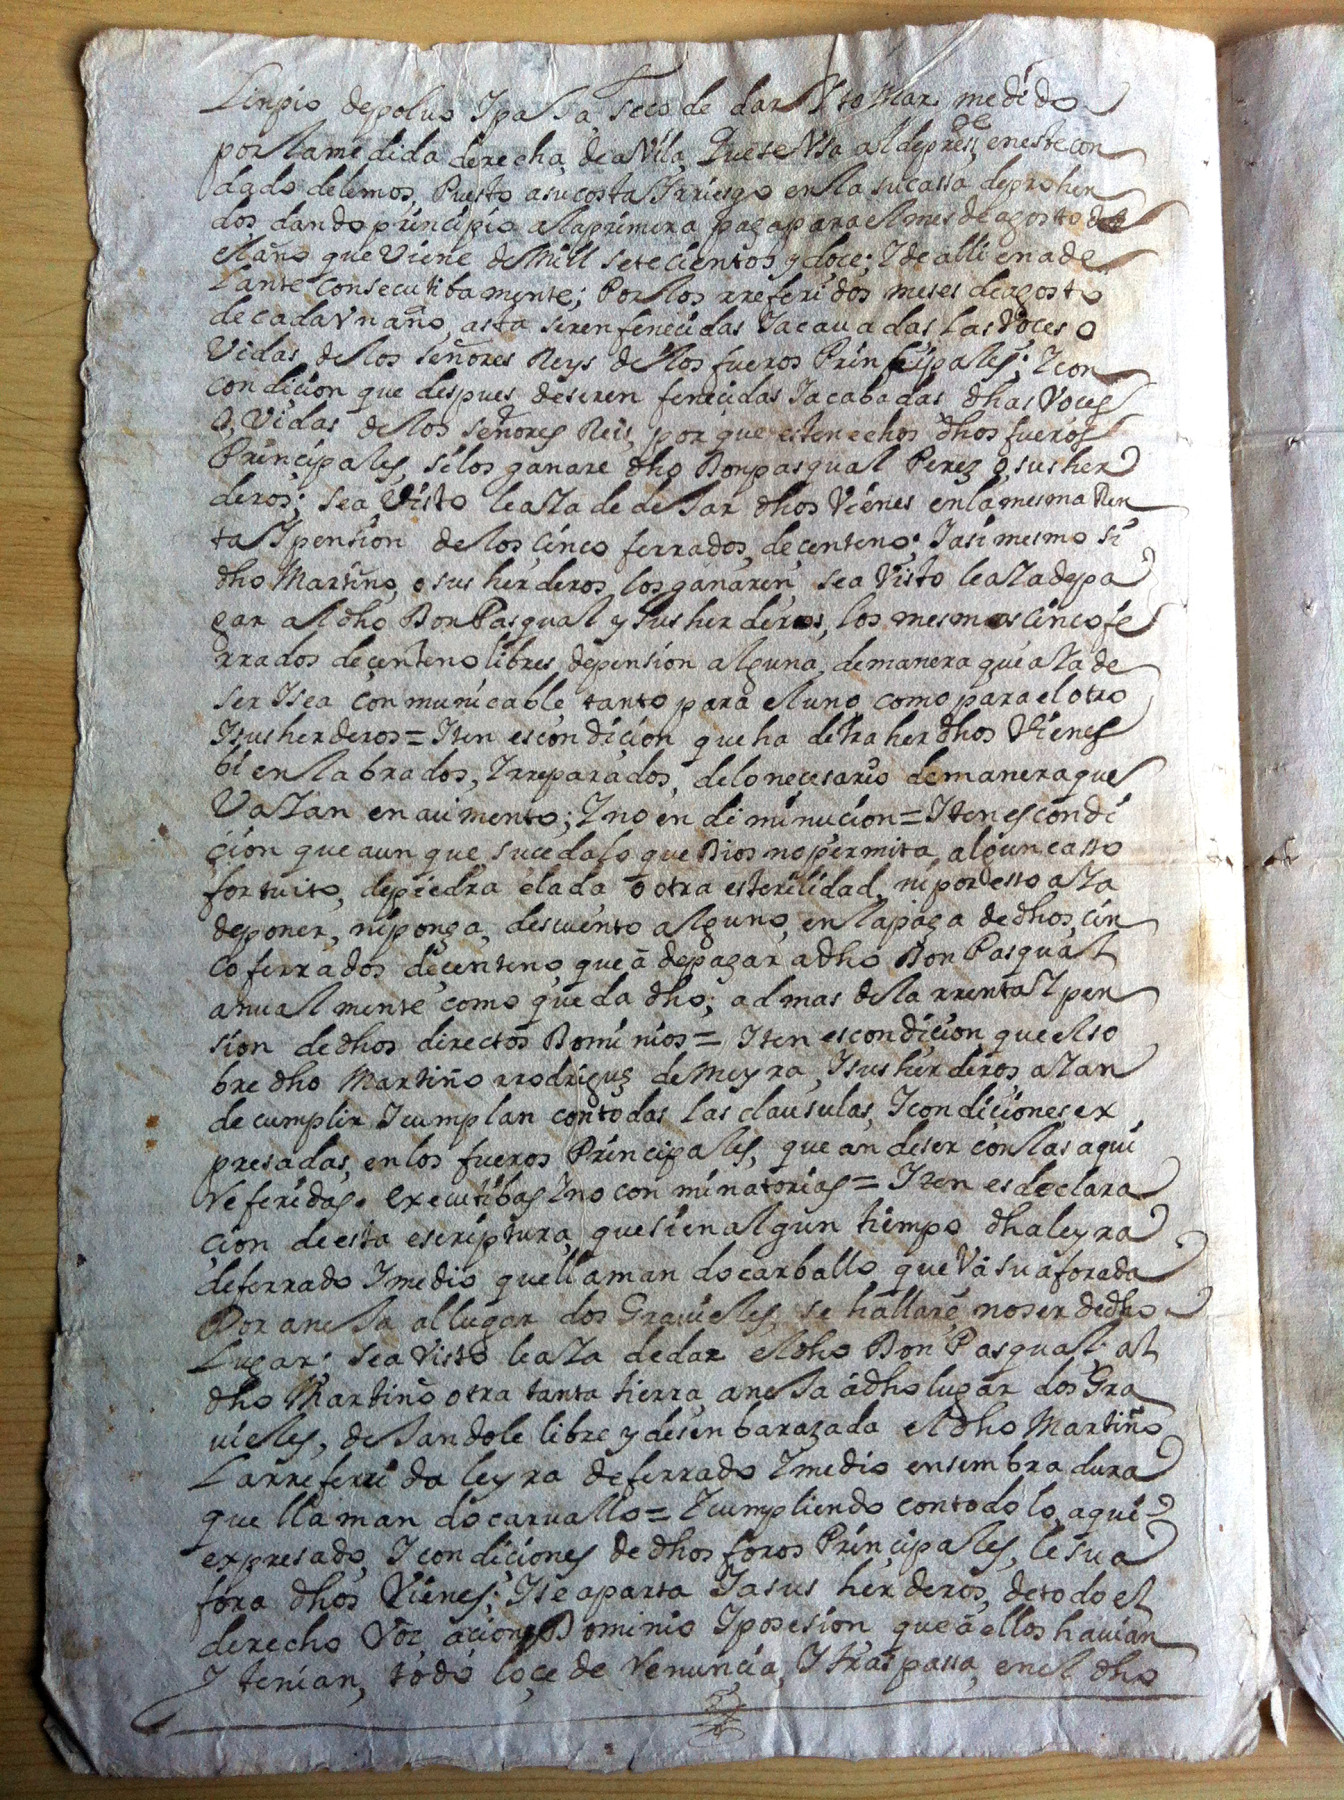 Linpio de polvo Ipaja seco de dar Y to mar medido
por la medida derecha de aVila que se Vsa al depreste en este con
dado de lemos, Puesto a su costa Irriesgo en la su cassa de prohen
dos dando principio a la primera paga para el mes de agosto de
el año que Viene de Mill setecientos y doce; I de alli en ade
Lante Consecutibamente; Por los rreferidos meses de agosto
de cada Vn año, asta seren fenecidas Iacauadas Las Voces o
Vidas de los señores Reys de los fueros Prinscipales; Icon
condicion que despues de seren fenecidas Iacabadas dhas Voces
O, Vidas de los señores Reis, por que esten echos dhos fueros
Principales, si los ganare dho Don pasqual Perez o sus her
deros; sea Visto le aIa de deJar dhos Vienes en la mesma Ren
ta I pension de los cinco ferrados de centeno; Iasi mesmo si
dho Martiño, o sus herderos los ganaren sea Visto le aIa de pa
gar al dho Don Pasqual y sus herderos, los mesmos cinco fe
rrados de centeno libres de pension alguna, de manera que aIa de
ser Isea conmunicable tanto para el uno como para el otro
Isus herderos = Iten es condicion que ha de traher dhos Vienes
bien labrados, Irreparados, de lo necesario de manera que
VaIan en aumento; I no en diminucion = Iten es condi
cion que aun que suceda lo que Dios no permita, algun casso
fortuito, de piedra elada o otra esterilidad, ni por esto aIa
de poner, ni ponga, descuento alguno, en la paga de dhos cin
co ferrados de centeno que a de pagar a dho Don Pasqual
anualmente como queda dho; ad mas de la rrenta I pen
sion de dhos directos Dominios = Iten es condicion que el so
bre dho Martiño rrodriguz de Meyra, Isus herderos aIan
de cumplir Icumplan con todas las clausulas, Icondiciones ex
presadas, en los fueros Principales, que an de ser con las aqui
Referidas. executibas I no conminatorias = Iten es declara
cion de esta escriptura, que si en algun tiempo dha leyra
de ferrado Imedio que llaman do carballo que Va su aforada
Por aneJa al lugar dos Gravieles, se hallare, no ser de dho
Lugar; sea Visto le aIa de dar el dho Don Pasqual al
dho Martiño otra tanta tierra aneJa á dho lugar dos Gra
vieles, deJandole libre y desenbarazada el dho Martiño
Larreferida leyra de ferrado Imedio en sembradura
que llaman do carvallo = Icumpliendo con todo lo aqui
expresado, Icondiciones de dhos foros Principales, le su a
fora dhos Vienes; Ise aparta Ia sus herderos, de todo el
derecho Voz acion Dominio Iposesion que á ellos havian
I tenian, todo lo cede Renuncia, Itraspassa, en el dho